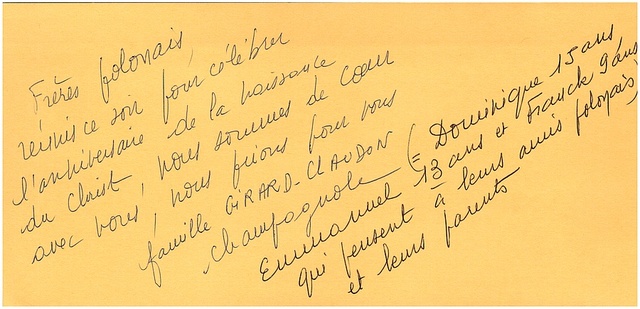 Frères polonais,
réunis ce soir pour célébrer
l'anniversaire de la naissance
du Christ, nous sommes de cœur
avec vous, nous prions pour vous
famille GIRARD-CLAUDON
Champagnole (= Dominique 15 ans
Emmanuel 13 ans et Franck 9 ans
qui pensent à leurs amis polonais,
et leurs parents